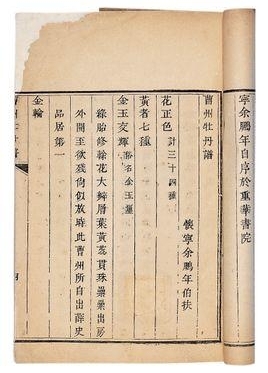 寧余鵬年自序於重華書院
曹州牡丹譜
懷寧余鵬年伯扶
花正色計三十四種
黃者七種
金玉交輝
綠胎修榦花大瓣層葉黃蕊貫珠纍纍出房
外開至欲殘尚似放時此曹州所自出薛史
品居第一
金輪